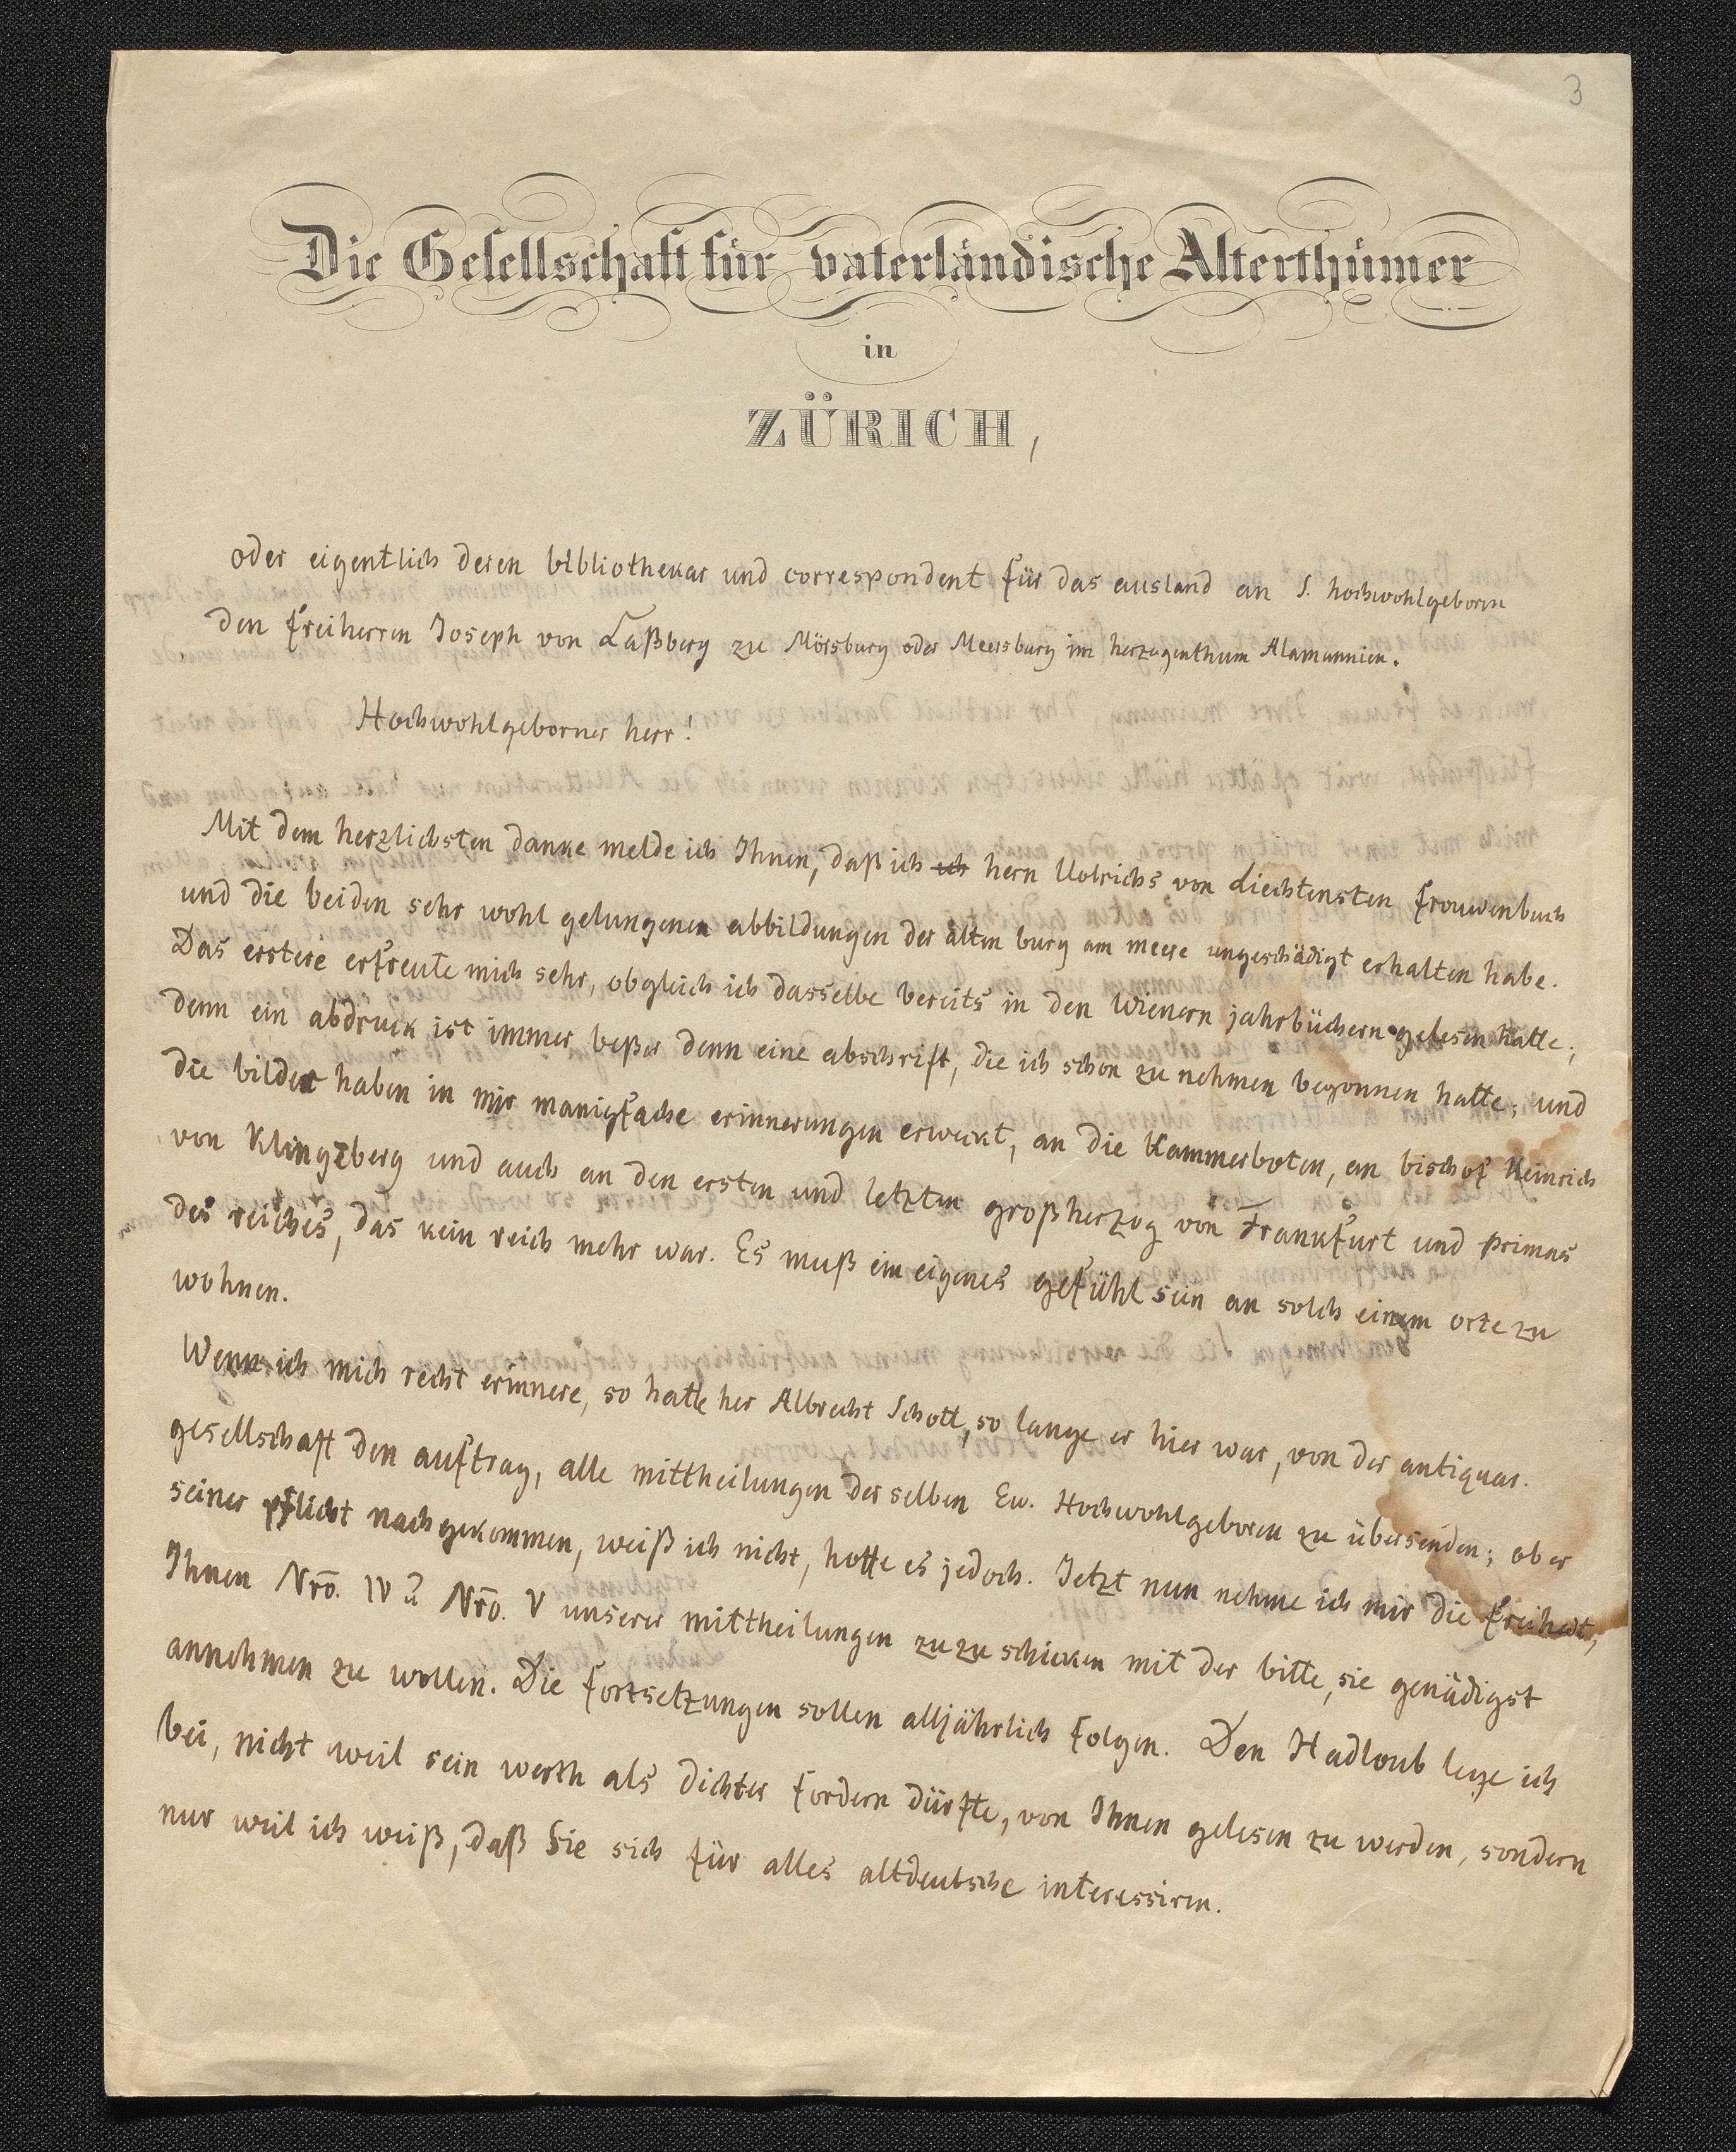 3
Die Gesellschaft für vaterländische Alterthümer
in
ZÜRICH,
oder eigentlich deren bibliothekar und correspondent für das ausland an S. hochwohlgeboren
den freiherren Joseph von Laßberg zu Mörsburg oder Meersburg im herzogenthum Alamannien.
Hochwohlgeborner herr!
Mit dem herzlichsten danke melde ich Ihnen, daß ich ich hern Uolrichs von Liechtensten frouwenbuch
und die beiden sehr wohl gelungenen abbildungen der alten burg am meere ungeschädigt erhalten habe.
Das erstere erfreute mich sehr, obgleich ich dasselbe bereits in den Wienern jahrbüchern gelesen hatte;
denn ein abdruck ist immer beßer denn eine abschrift, die ich schon zu nehmen begonnen hatte; und
die bilder haben in mir manigfache erinnerungen erweckt, an die Kammerboten, an bischof Heinrich
von Klingzberg und auch an den ersten und letzten großherzog von Frankfurt und primas
des reiches, das kein reich mehr war. Es muß ein eigenes gefühl sein an solch einem orte zu
wohnen.
Wenn ich mich recht erinnere, so hatte her Albrecht Schott, so lange er hier war, von der antiquar.
gesellschaft den auftrag, alle mittheilungen derselben Ew. Hochwohlgeboren zu übersenden; ob er
seiner pflicht nachgekommen, weiß ich nicht, hoffe es jedoch. Jetzt nun nehme ich mir die freiheit,
Ihnen Nrō. IV u. Nrō. V unserer mittheilungen zuzuschicken mit der bitte, sie genädigst
annehmen zu wollen. Die fortsetzungen sollen alljährlich folgen. Den Hadloub lege ich
bei, nicht weil sein werth als dichter fordern dürfte, von Ihnen gelesen zu werden, sondern
nur weil ich weiß, daß Sie sich für alles altdeutsche interessiren.